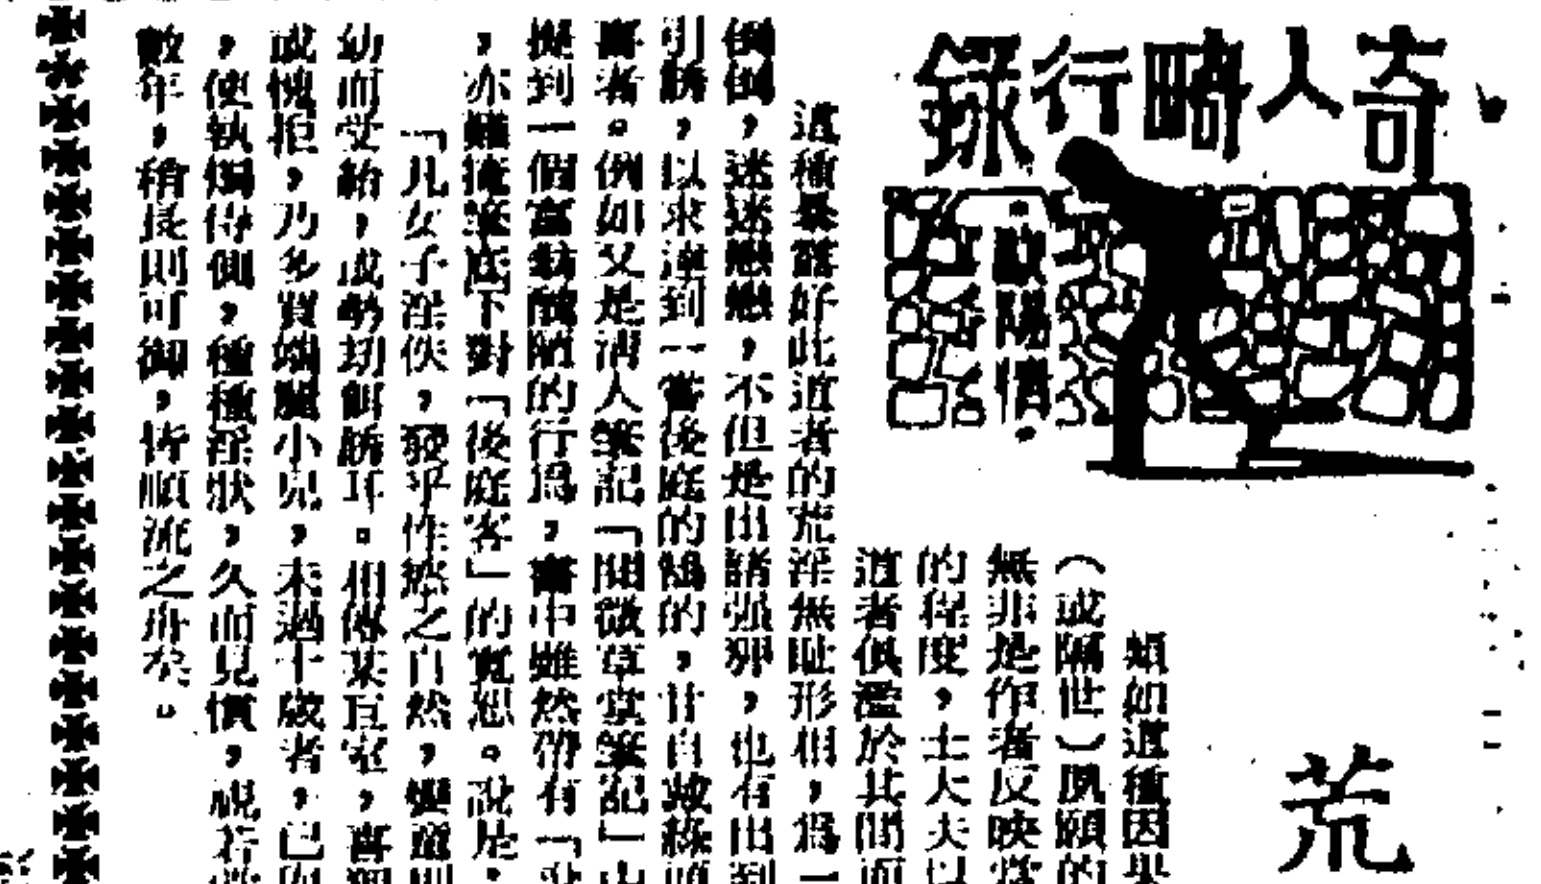 奇人畸行錄
歐陽情
荒
類如這種因果
（或隔世）夙願的
無非是作者反映當
的程度，士大夫以
道者俱濫於其間而
這種暴露好此道者的荒淫無恥形相，爲一
倒倒，迷迷戀戀，不但是出諸强狎，也有出到
引誘，以求達到一嘗後庭的的，甘自
書者。例如又是清人筆記「閱微草堂筆記」中
到一個富醜陋的行爲，書中雖然帶有「
，亦難掩筆底下對「後庭客」的寬恕。說是：
「凡女子淫佚，發乎性慾之自然，孌童則
幼而受紿，或勢劫餌誘耳。相傳某巨室，喜狎
或愧拒，乃多買端麗小兒，未過十歲者，已與
，使執燭侍側，種種淫狀，久而見慣，視若當
數年，稍長則可御，皆順流之舟矣。